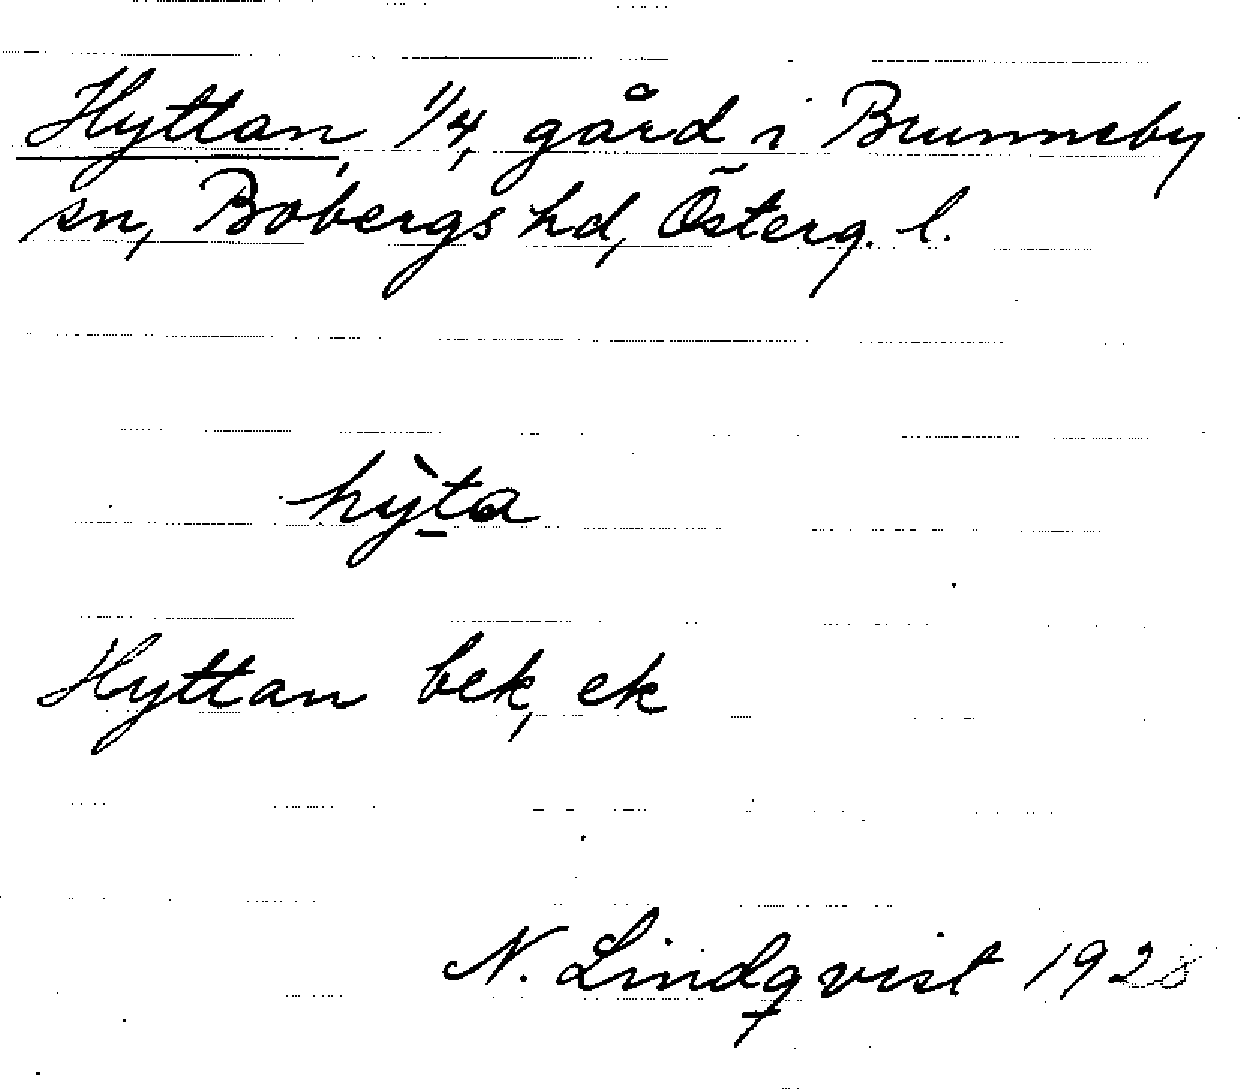 Hyttan, 1/4, gård i Brunneby
sn, Bobergs hd, Österg. l.
hỳta
Hyttan bek, ek
N. Lindqvist 1928